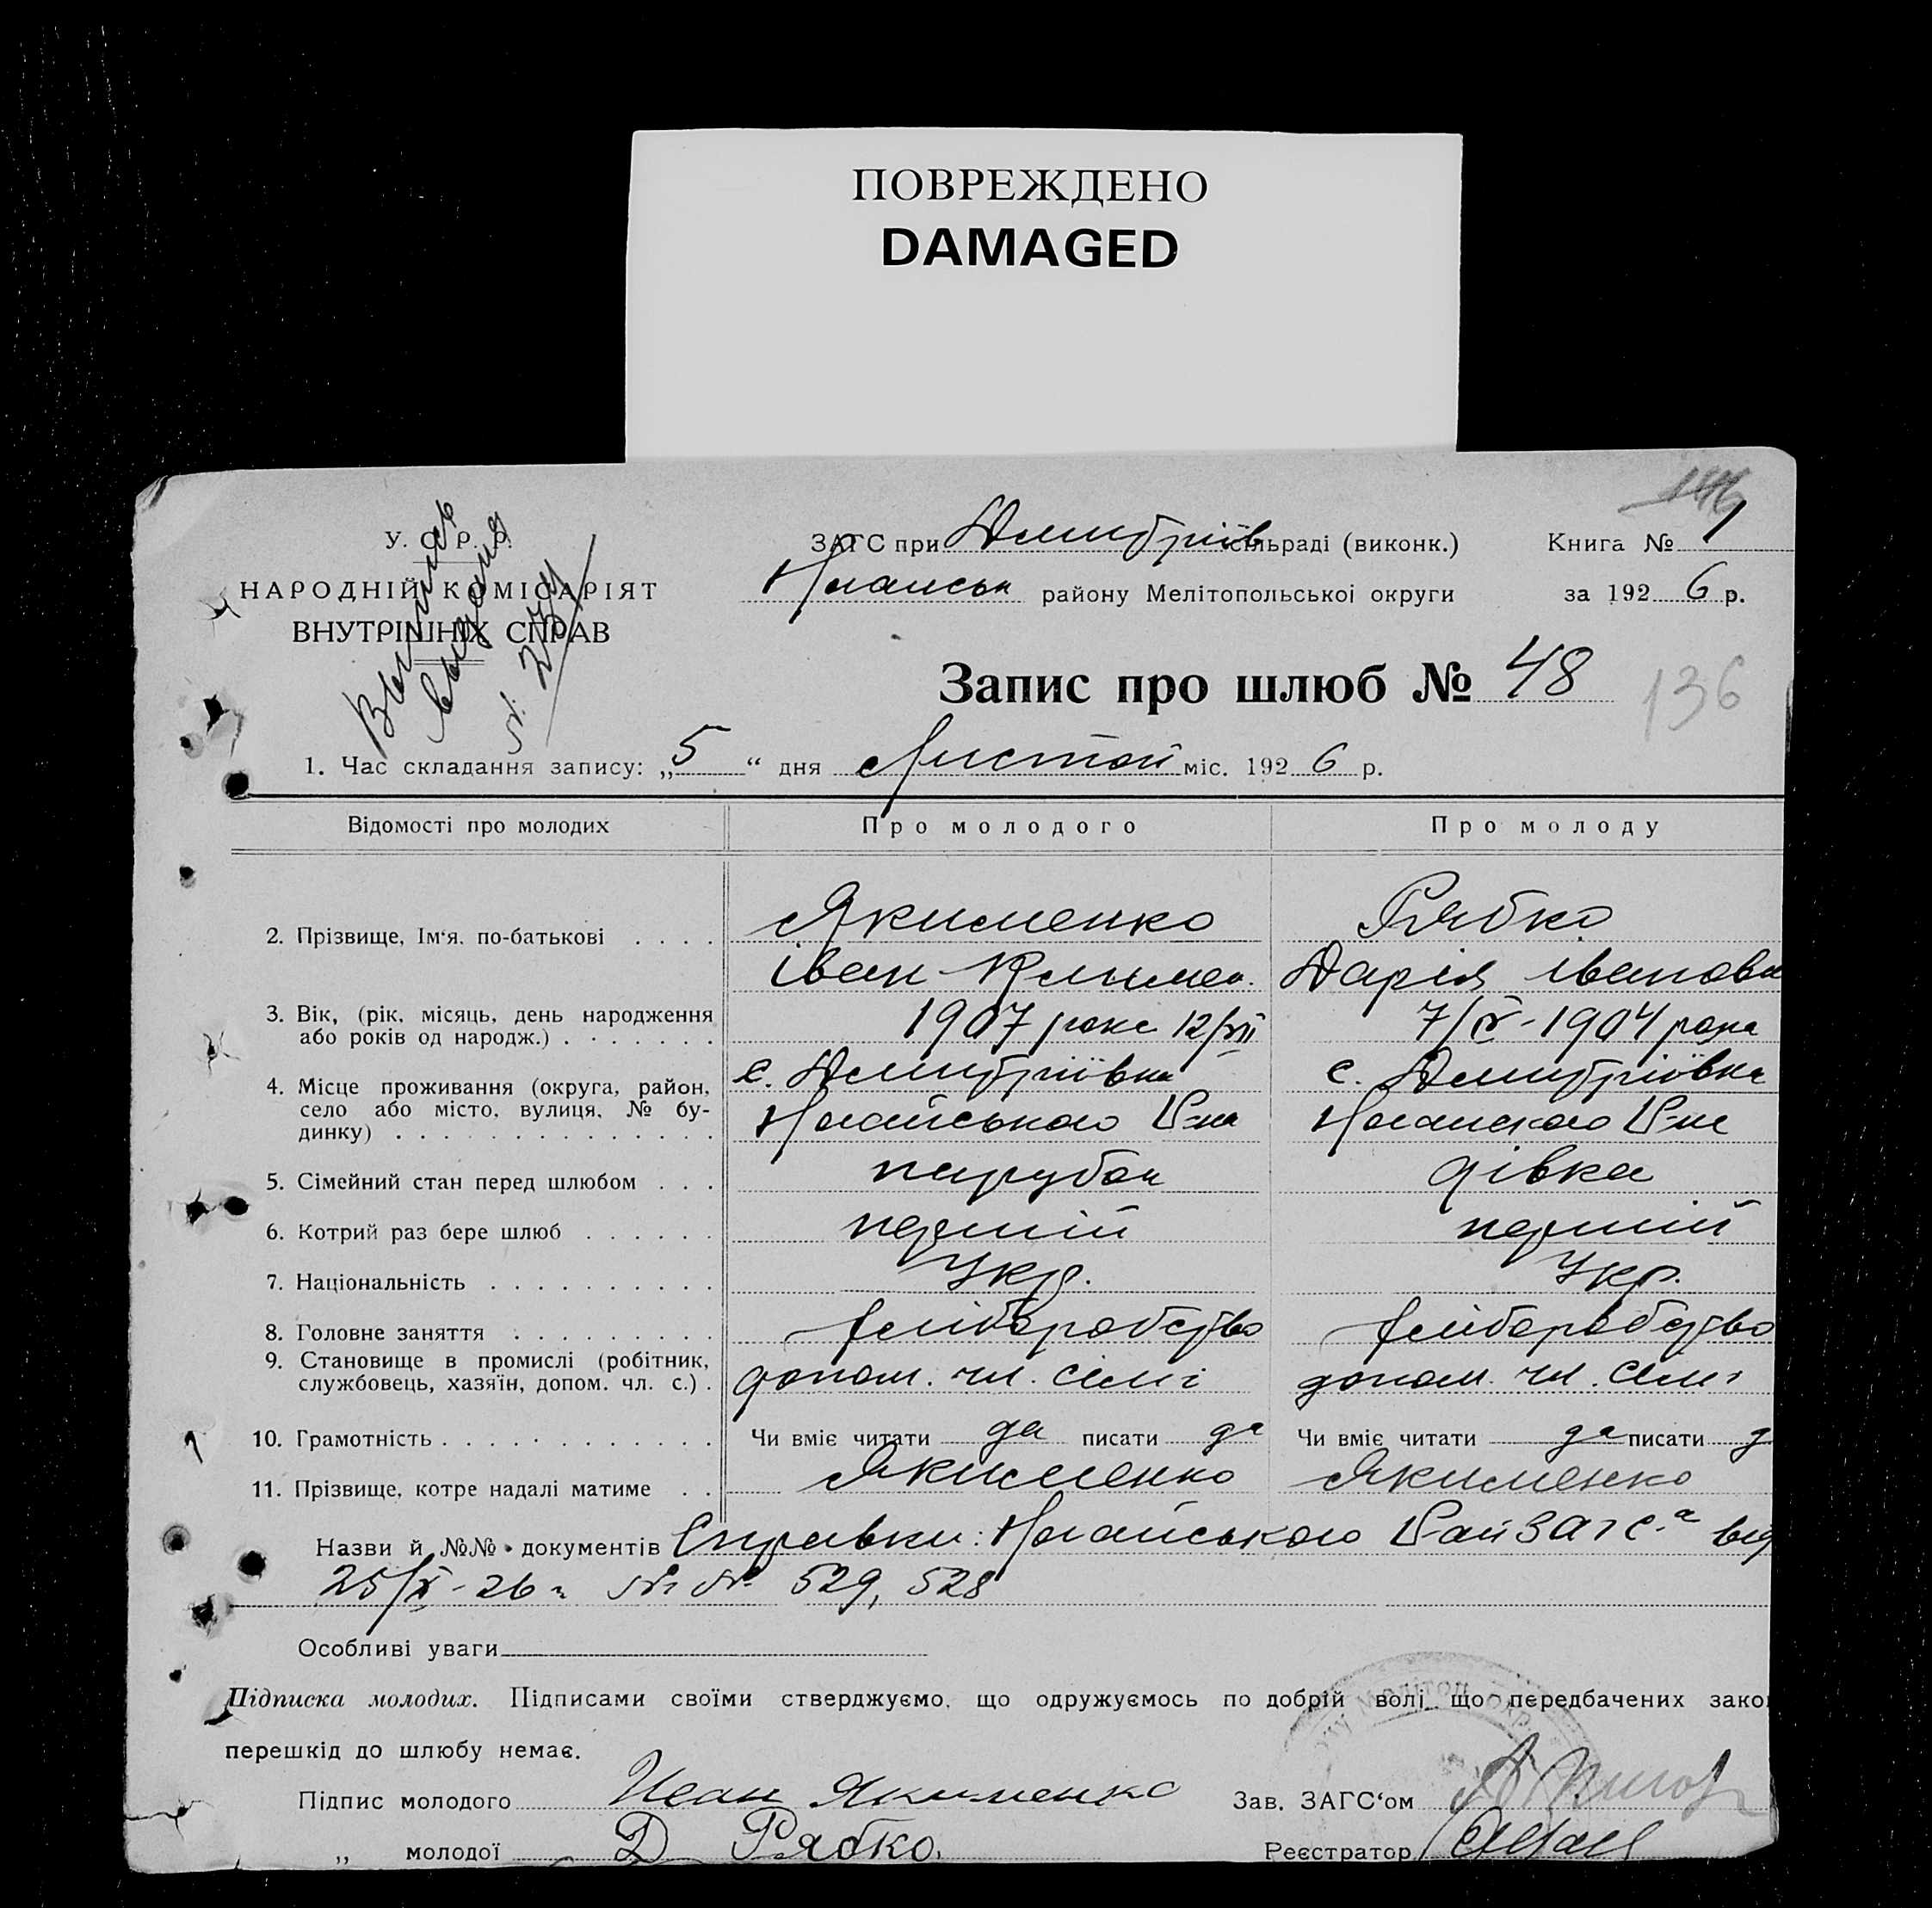 ПОВРЕЖДЕНО
DAMAGED
146
У. С. Р. Р.
НАРОДНІЙ КОМІСАРІЯТ
ВНУТРІШНІХ СПРАВ
ЗАГС при Дмитріїв сільраді (виконк.)
Ногайськ району Мелітопольської округи
Книга № 1
за 1926 р.
Запис про шлюб № 48
136
1. Час складання запису: „5“ дня Листоп міс. 1926 р.
Відомості про молодих Про молодого Про молоду
2. Прізвище, Ім'я, по-батькові . . . . Якименко Рябко
Іван Климен. Дарія Івановн
3. Вік, (рік, місяць, день народження
або років од народж.) . . . . . . . 1907 року 12/VII 7/IV-1904 рока
4. Місце проживання (округа, район, с. Дмитріївка с. Дмитріївка
село або місто, вулиця, № бу-
динку) . . . . . . . . . . . . . . Ногайського Р-на Ногайского Р-на
5. Сімейний стан перед шлюбом . . . парубок дівка
6. Котрий раз бере шлюб . . . . . . перший перший
7. Національність . . . . . . . . . . Укр. Укр.
8. Головне заняття . . . . . . . . . хліборобство хліборобство
9. Становище в промислі (робітник,
службовець, хазяїн, допом. чл. с.) . допом. чл. сімї допом. чл. сімї
10. Грамотність . . . . . . . . . . . . Чи вміє читати да писати да Чи вміє читати да писати д
11. Прізвище, котре надалі матиме . . Якименко Якименко
Назви й №№ документів Справки: Ногайського Рай ЗАГС-а від
25/X-26 г. №№ 529, 528
Особливі уваги
Підписка молодих. Підписами своїми стверджуємо, що одружуємось по добрій волі, що передбачених зако
перешкід до шлюбу немає.
Підпис молодого Иван Якименко Зав. ЗАГС'ом
„ молодої Д Рябко. Реєстратор